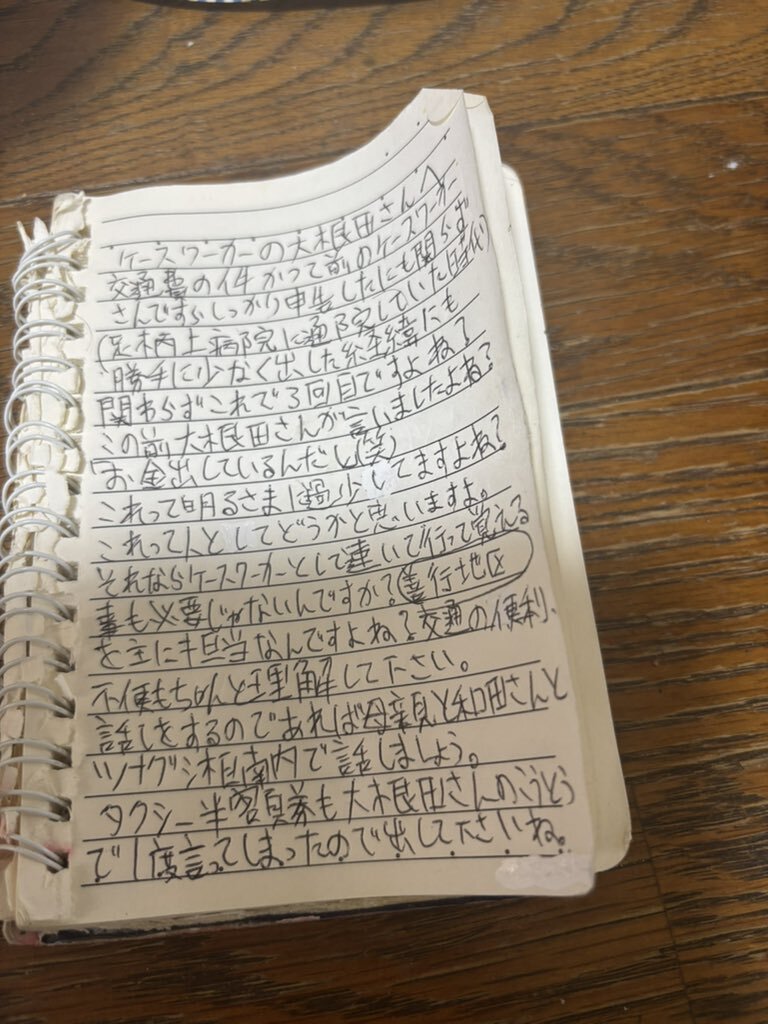 ケースワーカーの大根田さんへ
交通費の件かつて前のケースワーカー
さんですらしっかり申告したにも関らず
(足柄上病院に通院していた時代)
勝手に少なく出した経緯にも
関わらずこれで3回目ですよね?
この前大根田さんが言いましたよね?
「お金出しているんだし(笑)
これって明るさまに過少してますよね?
これって人としてどうかと思いますよ。
それならケースワーカーとして連いで行って覚える
事も必要じゃないんですか?善行地区
を主に担当なんですよね?交通の便利、
不便もちゃんと理解して下さい。
話しをするのであれば母親と和田さんと
ツナグ湘南内で話しましょう。
タクシー半額券も大根田さんのこうとう
で1度言ってしまったので出して下さいね。